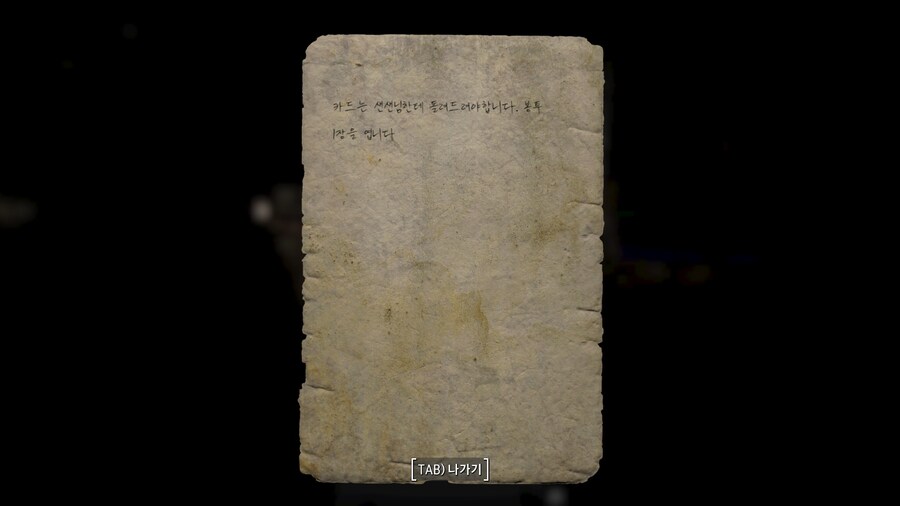 카드는 션션님한데 돌려드려야합니다. 봉투
1장을 엽니다
[TAB) 나가기]